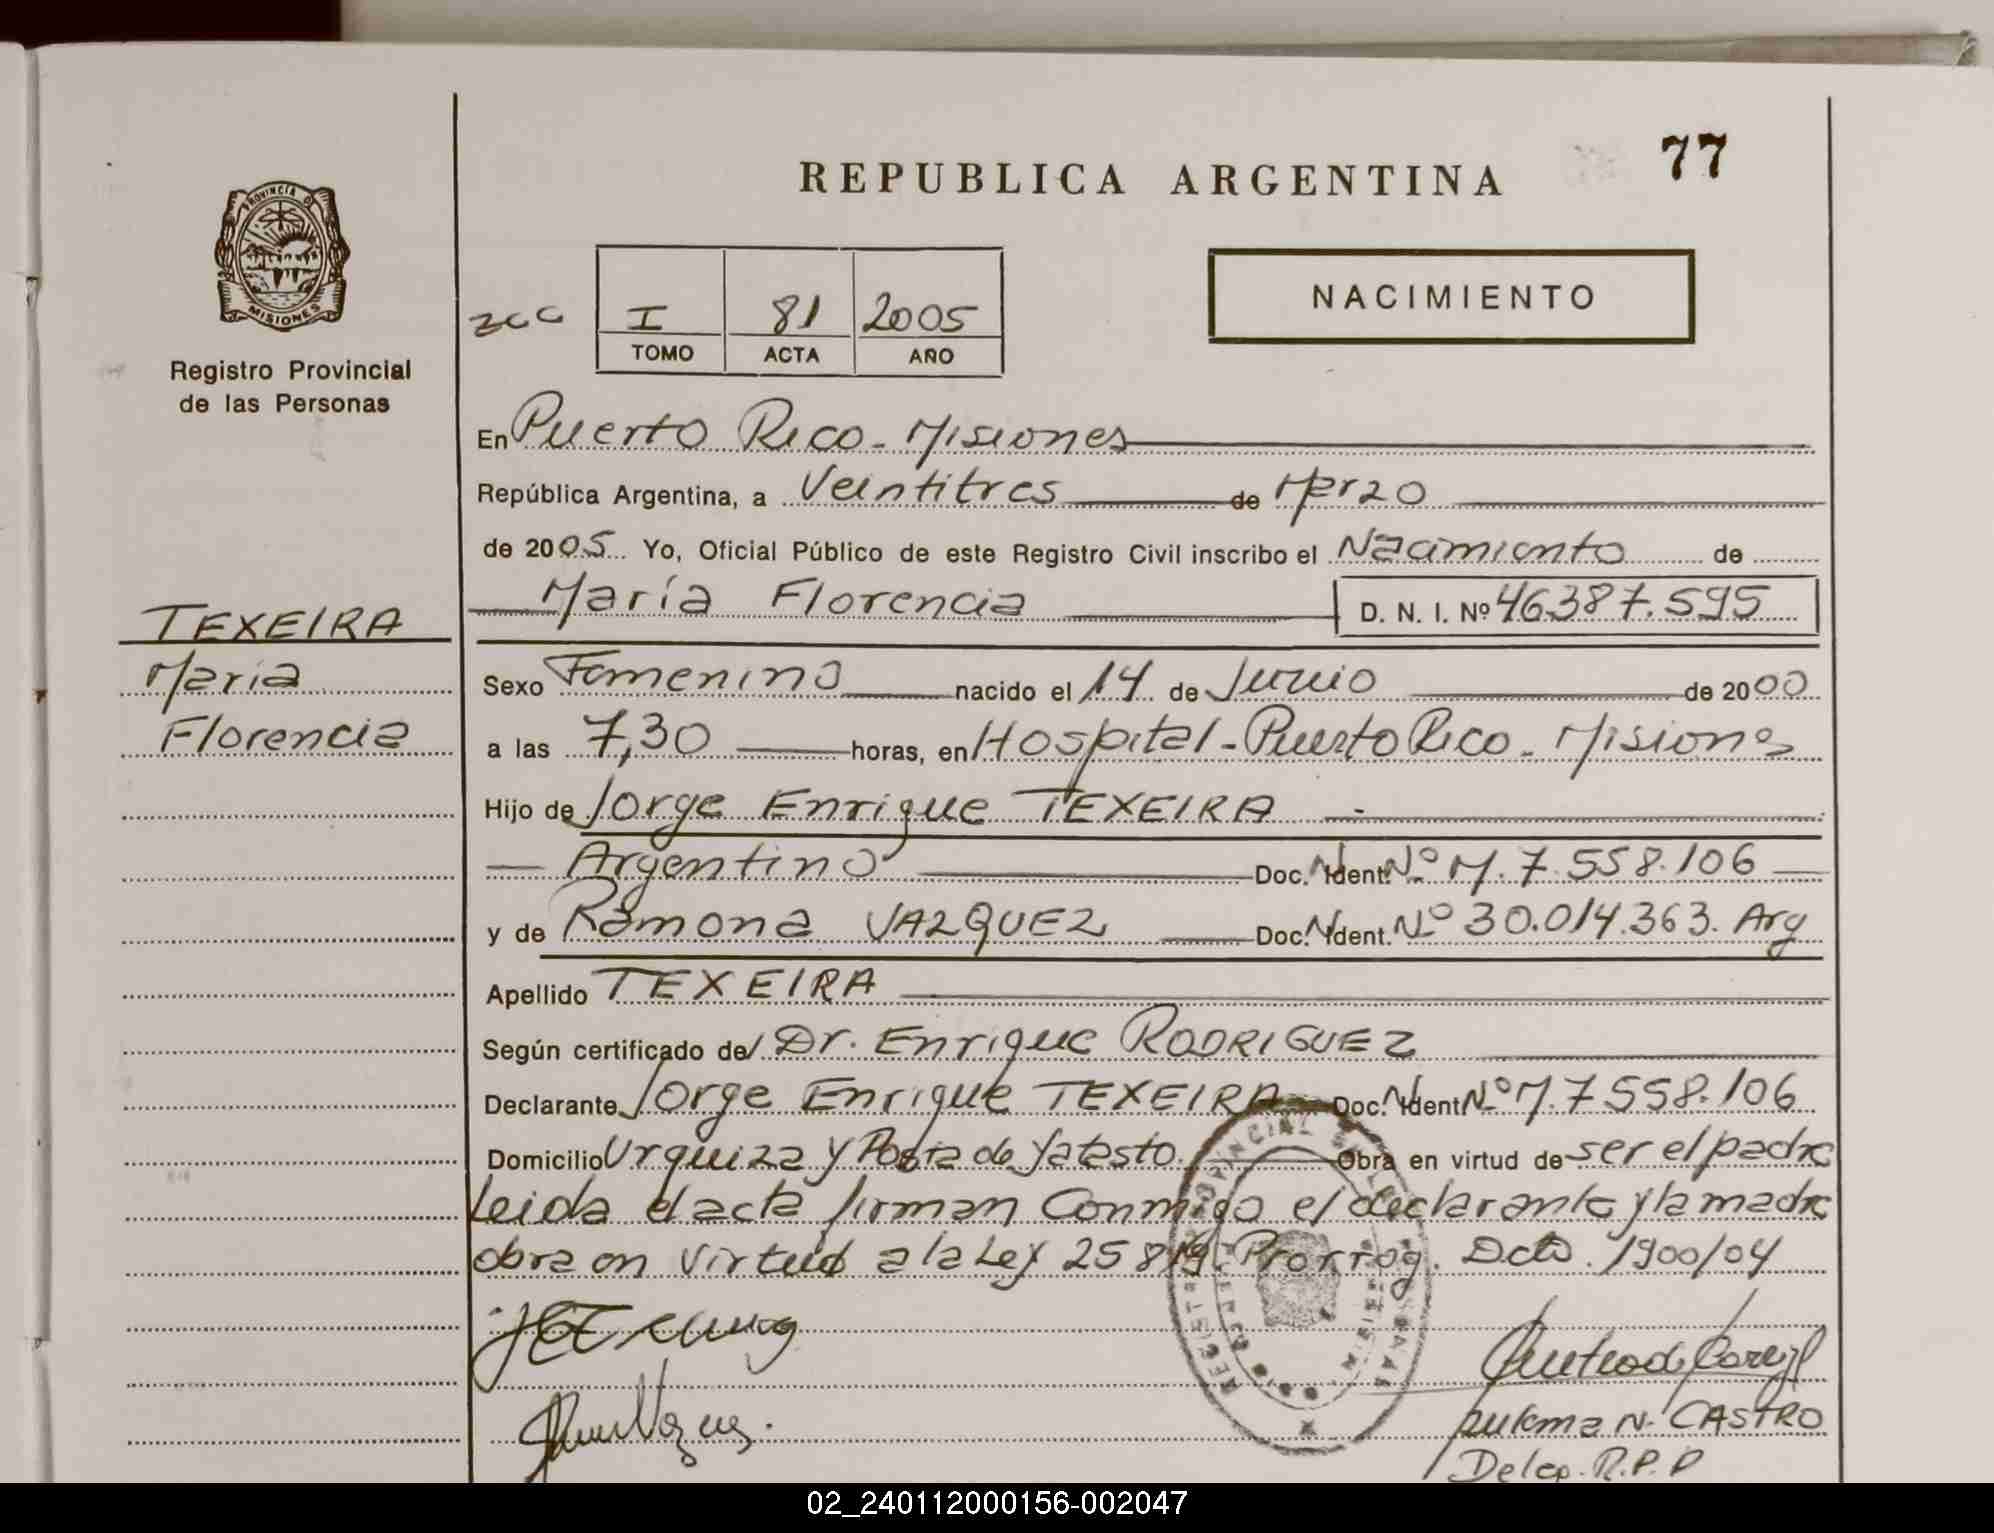 77
REPUBLICA ARGENTINA
PROVINCIA DE
MISIONES
Registro Provincial
de las Personas
NACIMIENTO
I 81 2005
TOMO ACTA AÑO
En Puerto Rico - Misiones
República Argentina, a Veintitres de Marzo
de 2005 Yo, Oficial Público de este Registro Civil inscribo el Nacimiento de
María Florencia D. N. I. Nº 46387.595
TEXEIRA
Maria
Florencia
Sexo Femenino nacido el 14 de Junio de 2000
a las 7,30 horas, en Hospital - Puerto Rico - Misiones
Hijo de Jorge Enrique TEXEIRA
Argentino Doc. Ident. Nº M. 7.558.106
y de Ramona VAZQUEZ Doc. Ident. Nº 30.014.363. Arg
Apellido TEXEIRA
Según certificado de/ Dr. Enrique RODRIGUEZ
Declarante Jorge Enrique TEXEIRA Doc. Ident Nº M. 7 558.106
Domicilio Urquiza y Posta de Yatasto Obra en virtud de ser el padre
Leida el acta firman Conmigo el declarante y la madre
obra en virtud a la Ley 25819 Prorrog. Dcto. 1900/04
N. CASTRO
Deleg. R.P.P
02_240112000156-002047